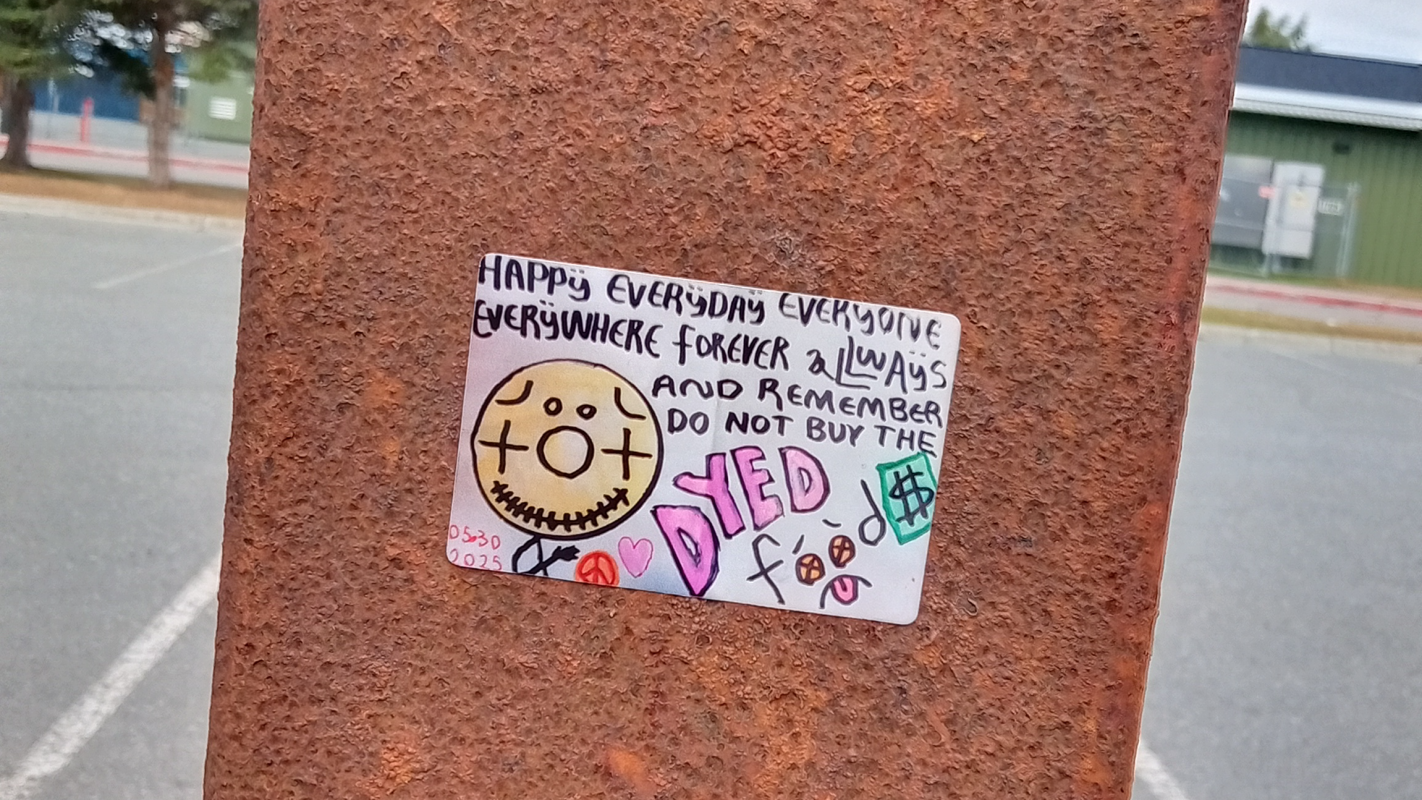 HAPPÿ EVERÿDAÿ EVERYONE
EVERÿWHERE fOREVER aLLWAÿS
AND REMEMBER
DO NOT BUY THE
DYED
food $
05.30
2025